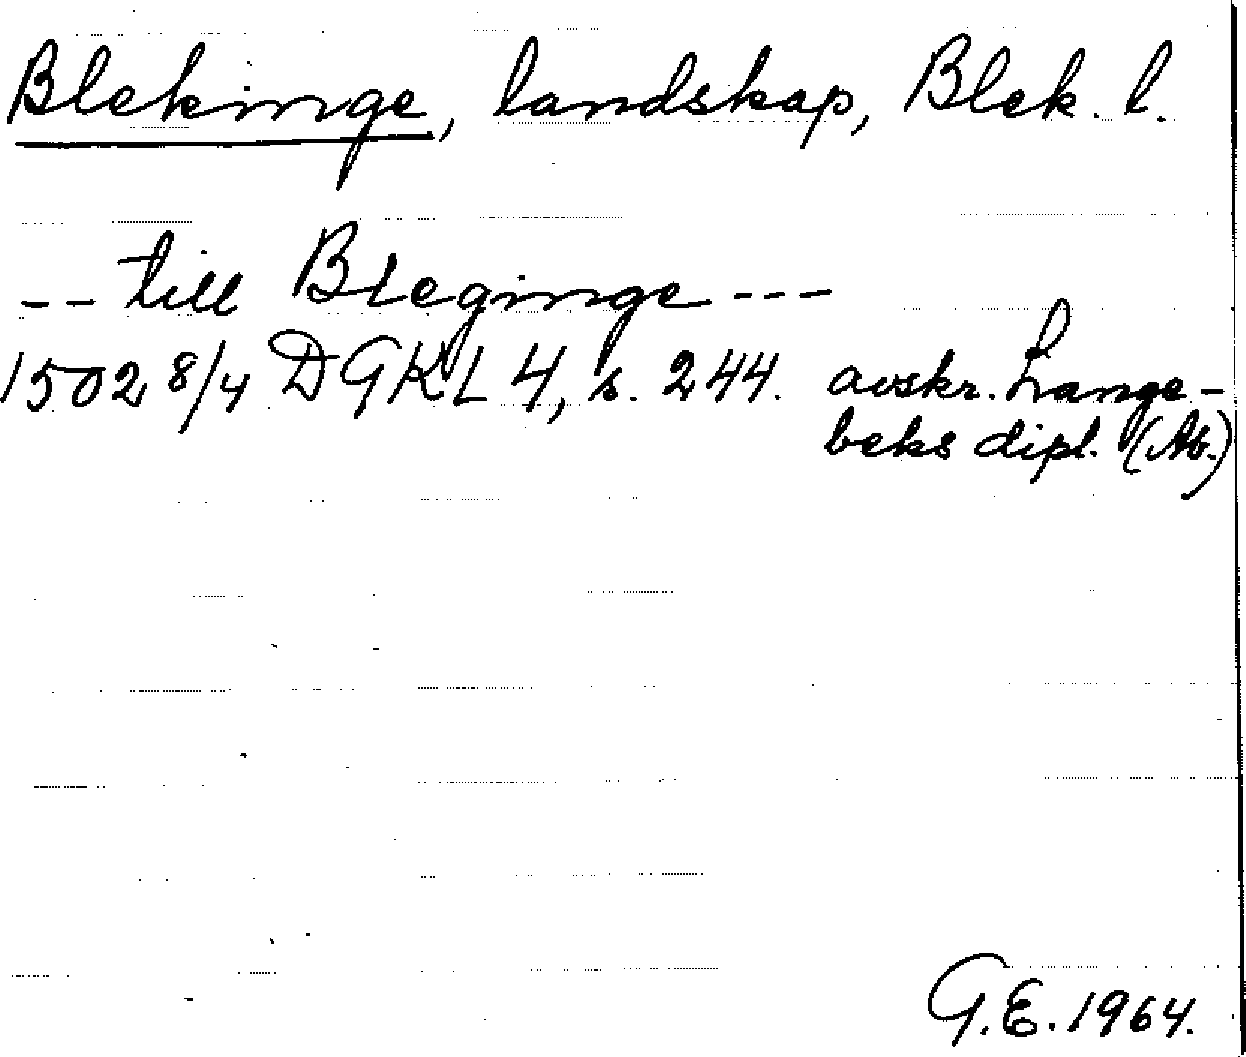 Blekinge, landskap, Blek. l.
-- till Bleginge ---
1502 8/4 DGKL 4, s. 244. avskr. Lange-
beks dipl. (Ab.)
G.E. 1964.